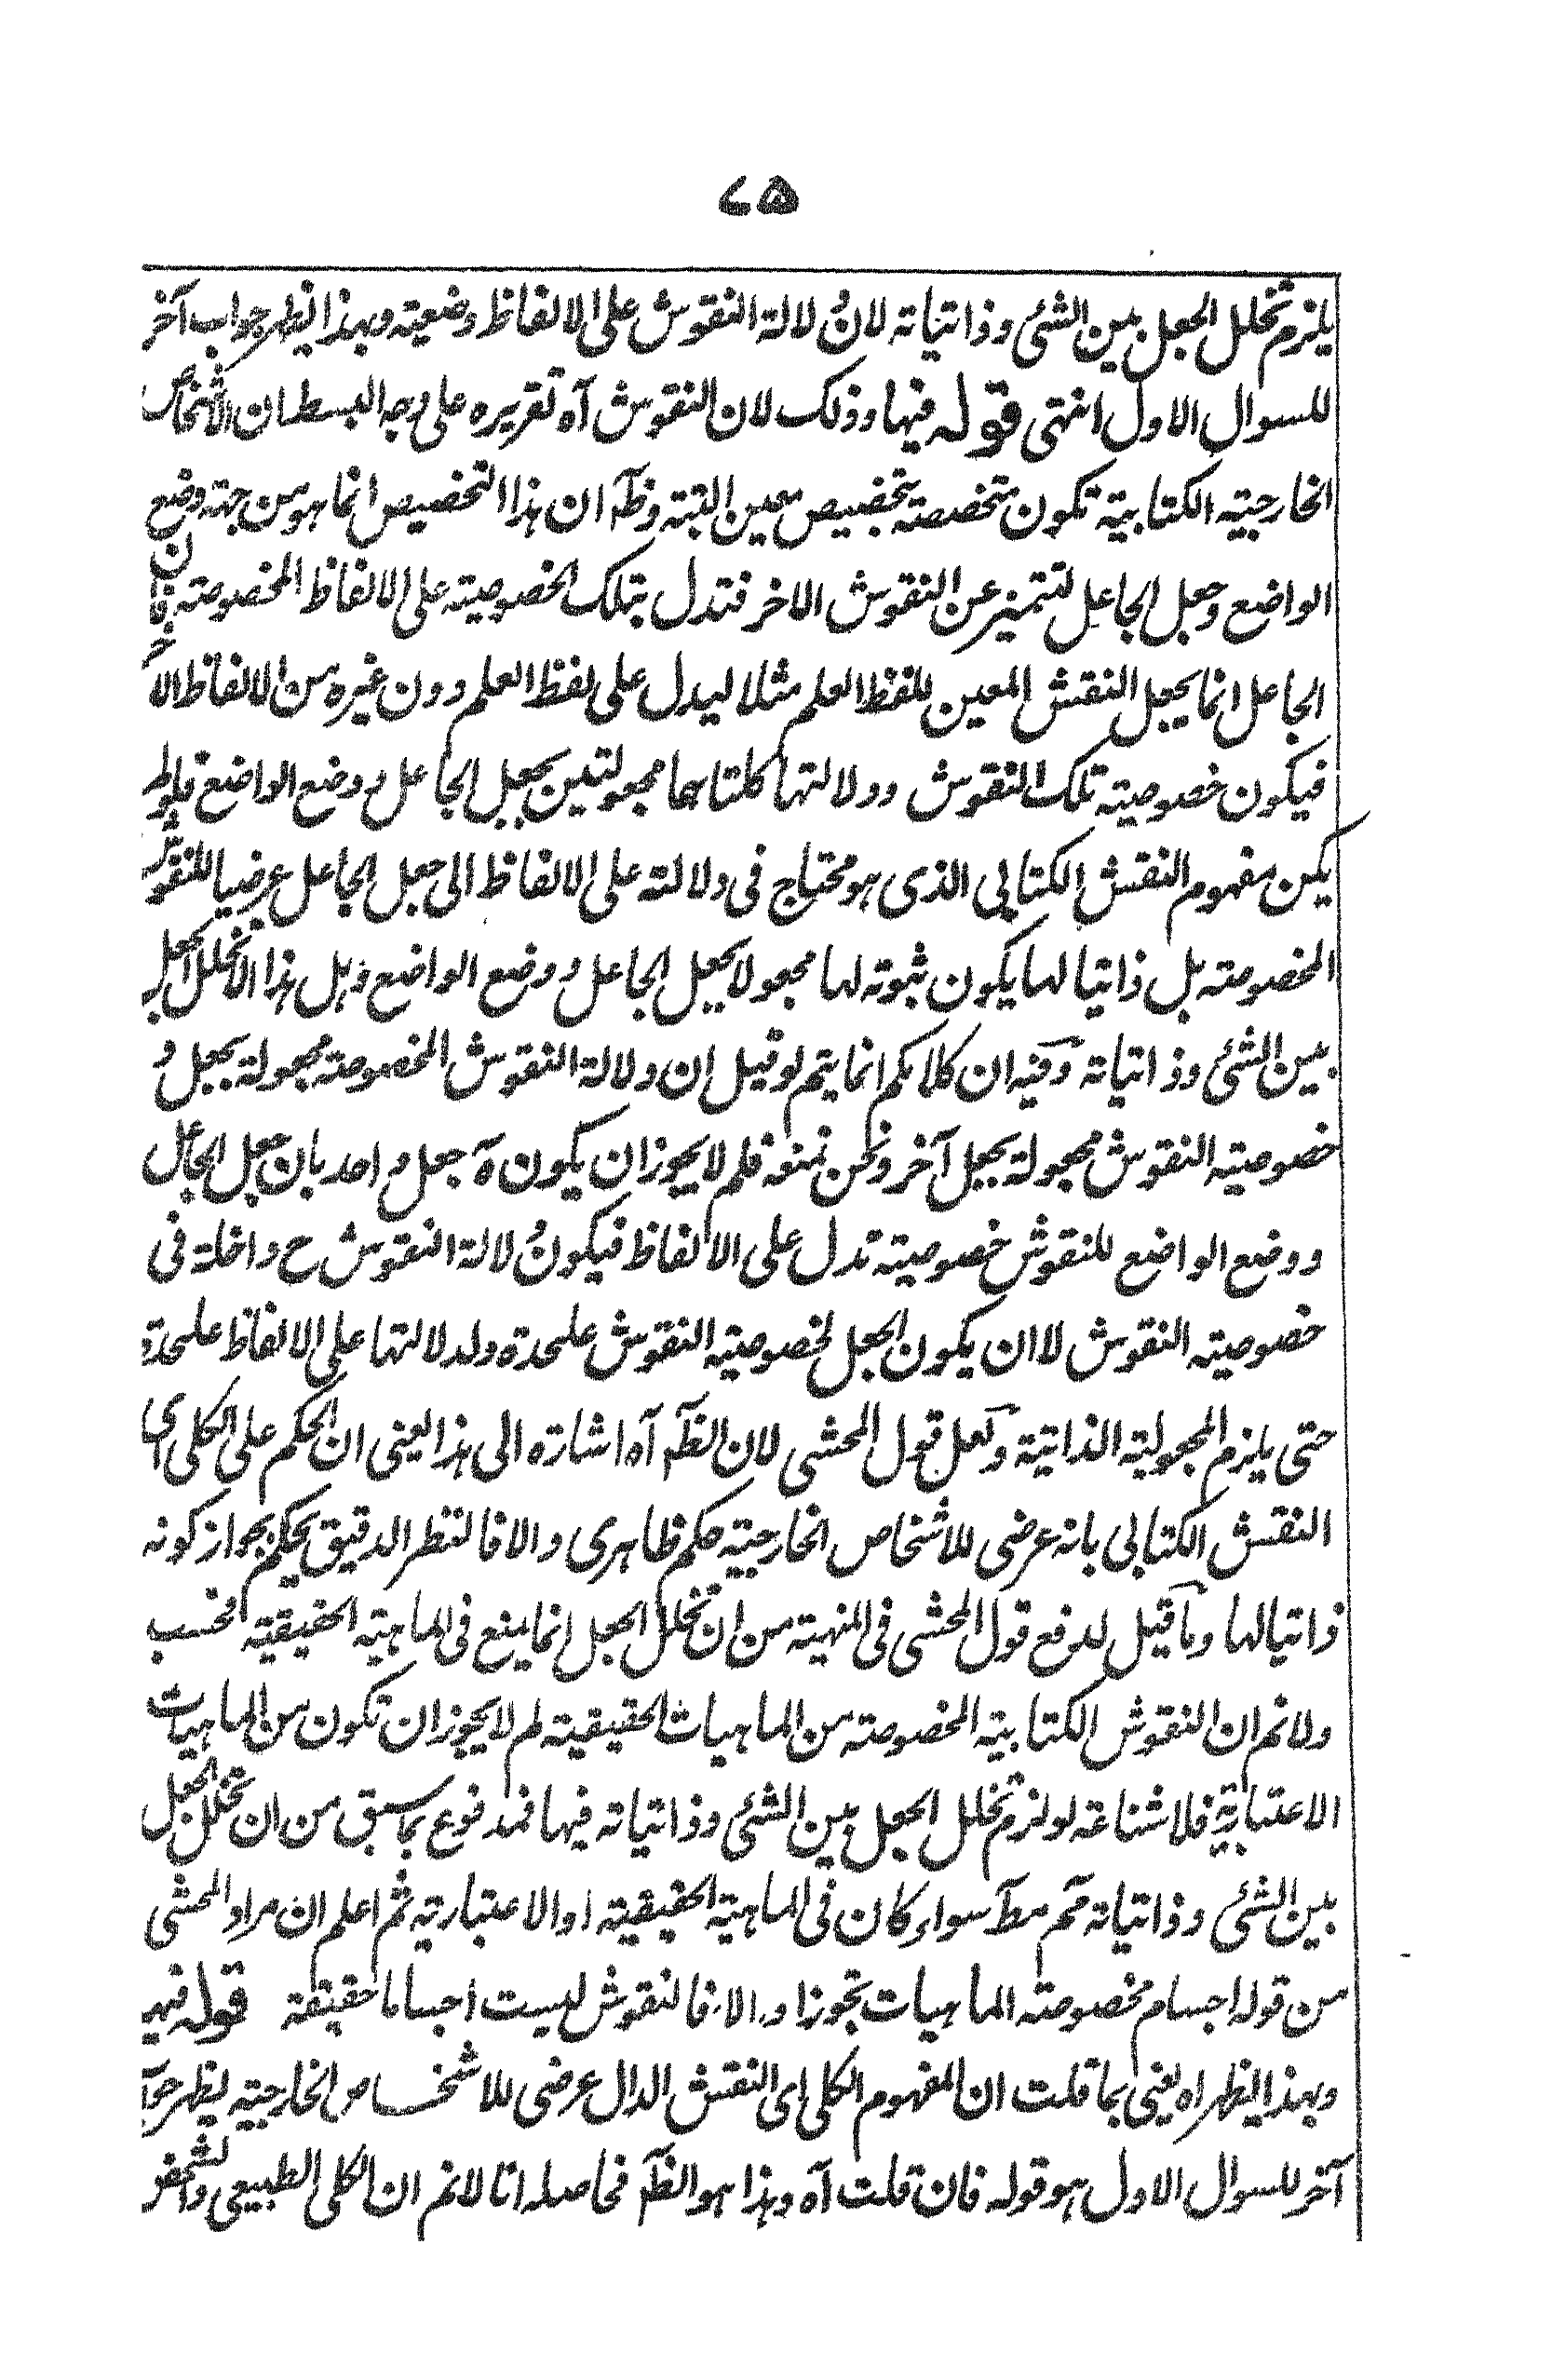 ٧٥
يلزم تخلل الجعل بين الشئ وذاتياته لان دلالة النقوش على الالفاظ وضعية وبهذا يظهر جواب آخر
للسوال الاول انتهى قوله فيها وذلك لان النقوش آه تقريره على وجه البسط ان الاشخاص
الخارجية الكتابية تكون متخصصة بتخصيص معين البتة وظآ ان هذا التخصيص انما هو من جهة وضع
الواضع وجعل الجاعل لتتميز عن النقوش الاخر فتدل بتلك الخصوصية على الالفاظ المخصوصة فان
الجاعل انما يجعل النقش المعين للفظ العلم مثلا ليدل على لفظ العلم دون غيره من الالفاظ الاخر
فيكون خصوصية تلك النقوش ودلالتها كلتاهما مجعولتين بجعل الجاعل ووضع الواضع فلو لم
يكن مفهوم النقش الكتابي الذى هو محتاج فى دلالته على الالفاظ الى جعل الجاعل عرضيا للنقوش
المخصوصة بل ذاتيا لها يكون ثبوته لها مجعولا بجعل الجاعل ووضع الواضع وهل هذا الا تخلل الجعل
بين الشئ وذاتياته وفيه ان كلامكم انما يتم لو قيل ان دلالة النقوش المخصوصة مجعولة بجعل و
خصوصية النقوش مجعولة بجعل آخر ونحن نمنعه فلم لا يجوز ان يكون ه جعل واحد بان جعل الجاعل
ووضع الواضع للنقوش خصوصية تدل على الالفاظ فيكون دلالة النقوش ح داخلة فى
خصوصية النقوش لا ان يكون الجعل لخصوصية النقوش علحدة ولدلالتها على الالفاظ علحدة
حتى يلزم المجعولية الذاتية ولعل قول المحشى لان الظآ آه اشارة الى هذا يعنى ان الحكم على الكلى اى
النقش الكتابى بانه عرضى للاشخاص الخارجية حكم ظاهرى والا فالنظر الدقيق يحكم بجواز كونه
ذاتيا لها وما قيل لدفع قول المحشى فى المنهية من ان تخلل الجعل انما يمنع فى الماهية الحقيقية فحسب
ولانم ان النقوش الكتابية المخصوصة من الماهيات الحقيقية لم لا يجوز ان تكون من الماهيات
الاعتبارية فلا شناعة لو لزم تخلل الجعل بين الشئ وذاتياته فيها فمدفوع بما سبق من ان تخلل الجعل
بين الشئ وذاتياته مح مطآ سواء كان فى الماهية الحقيقية او الاعتبارية ثم اعلم ان مراد المحشى
من قوله اجسام مخصوصة الماهيات تجوزا والا فالنقوش ليست اجساما حقيقة قوله فيه
وبهذا يظهر اه يعنى بما قلت ان المفهوم الكلى اى النقش الدال عرضى للاشخاص الخارجية يظهر جواب
آخر للسوال الاول هو قوله فان قلت آه وهذا هو الظآ فحاصله انا لانم ان الكلى الطبيعى